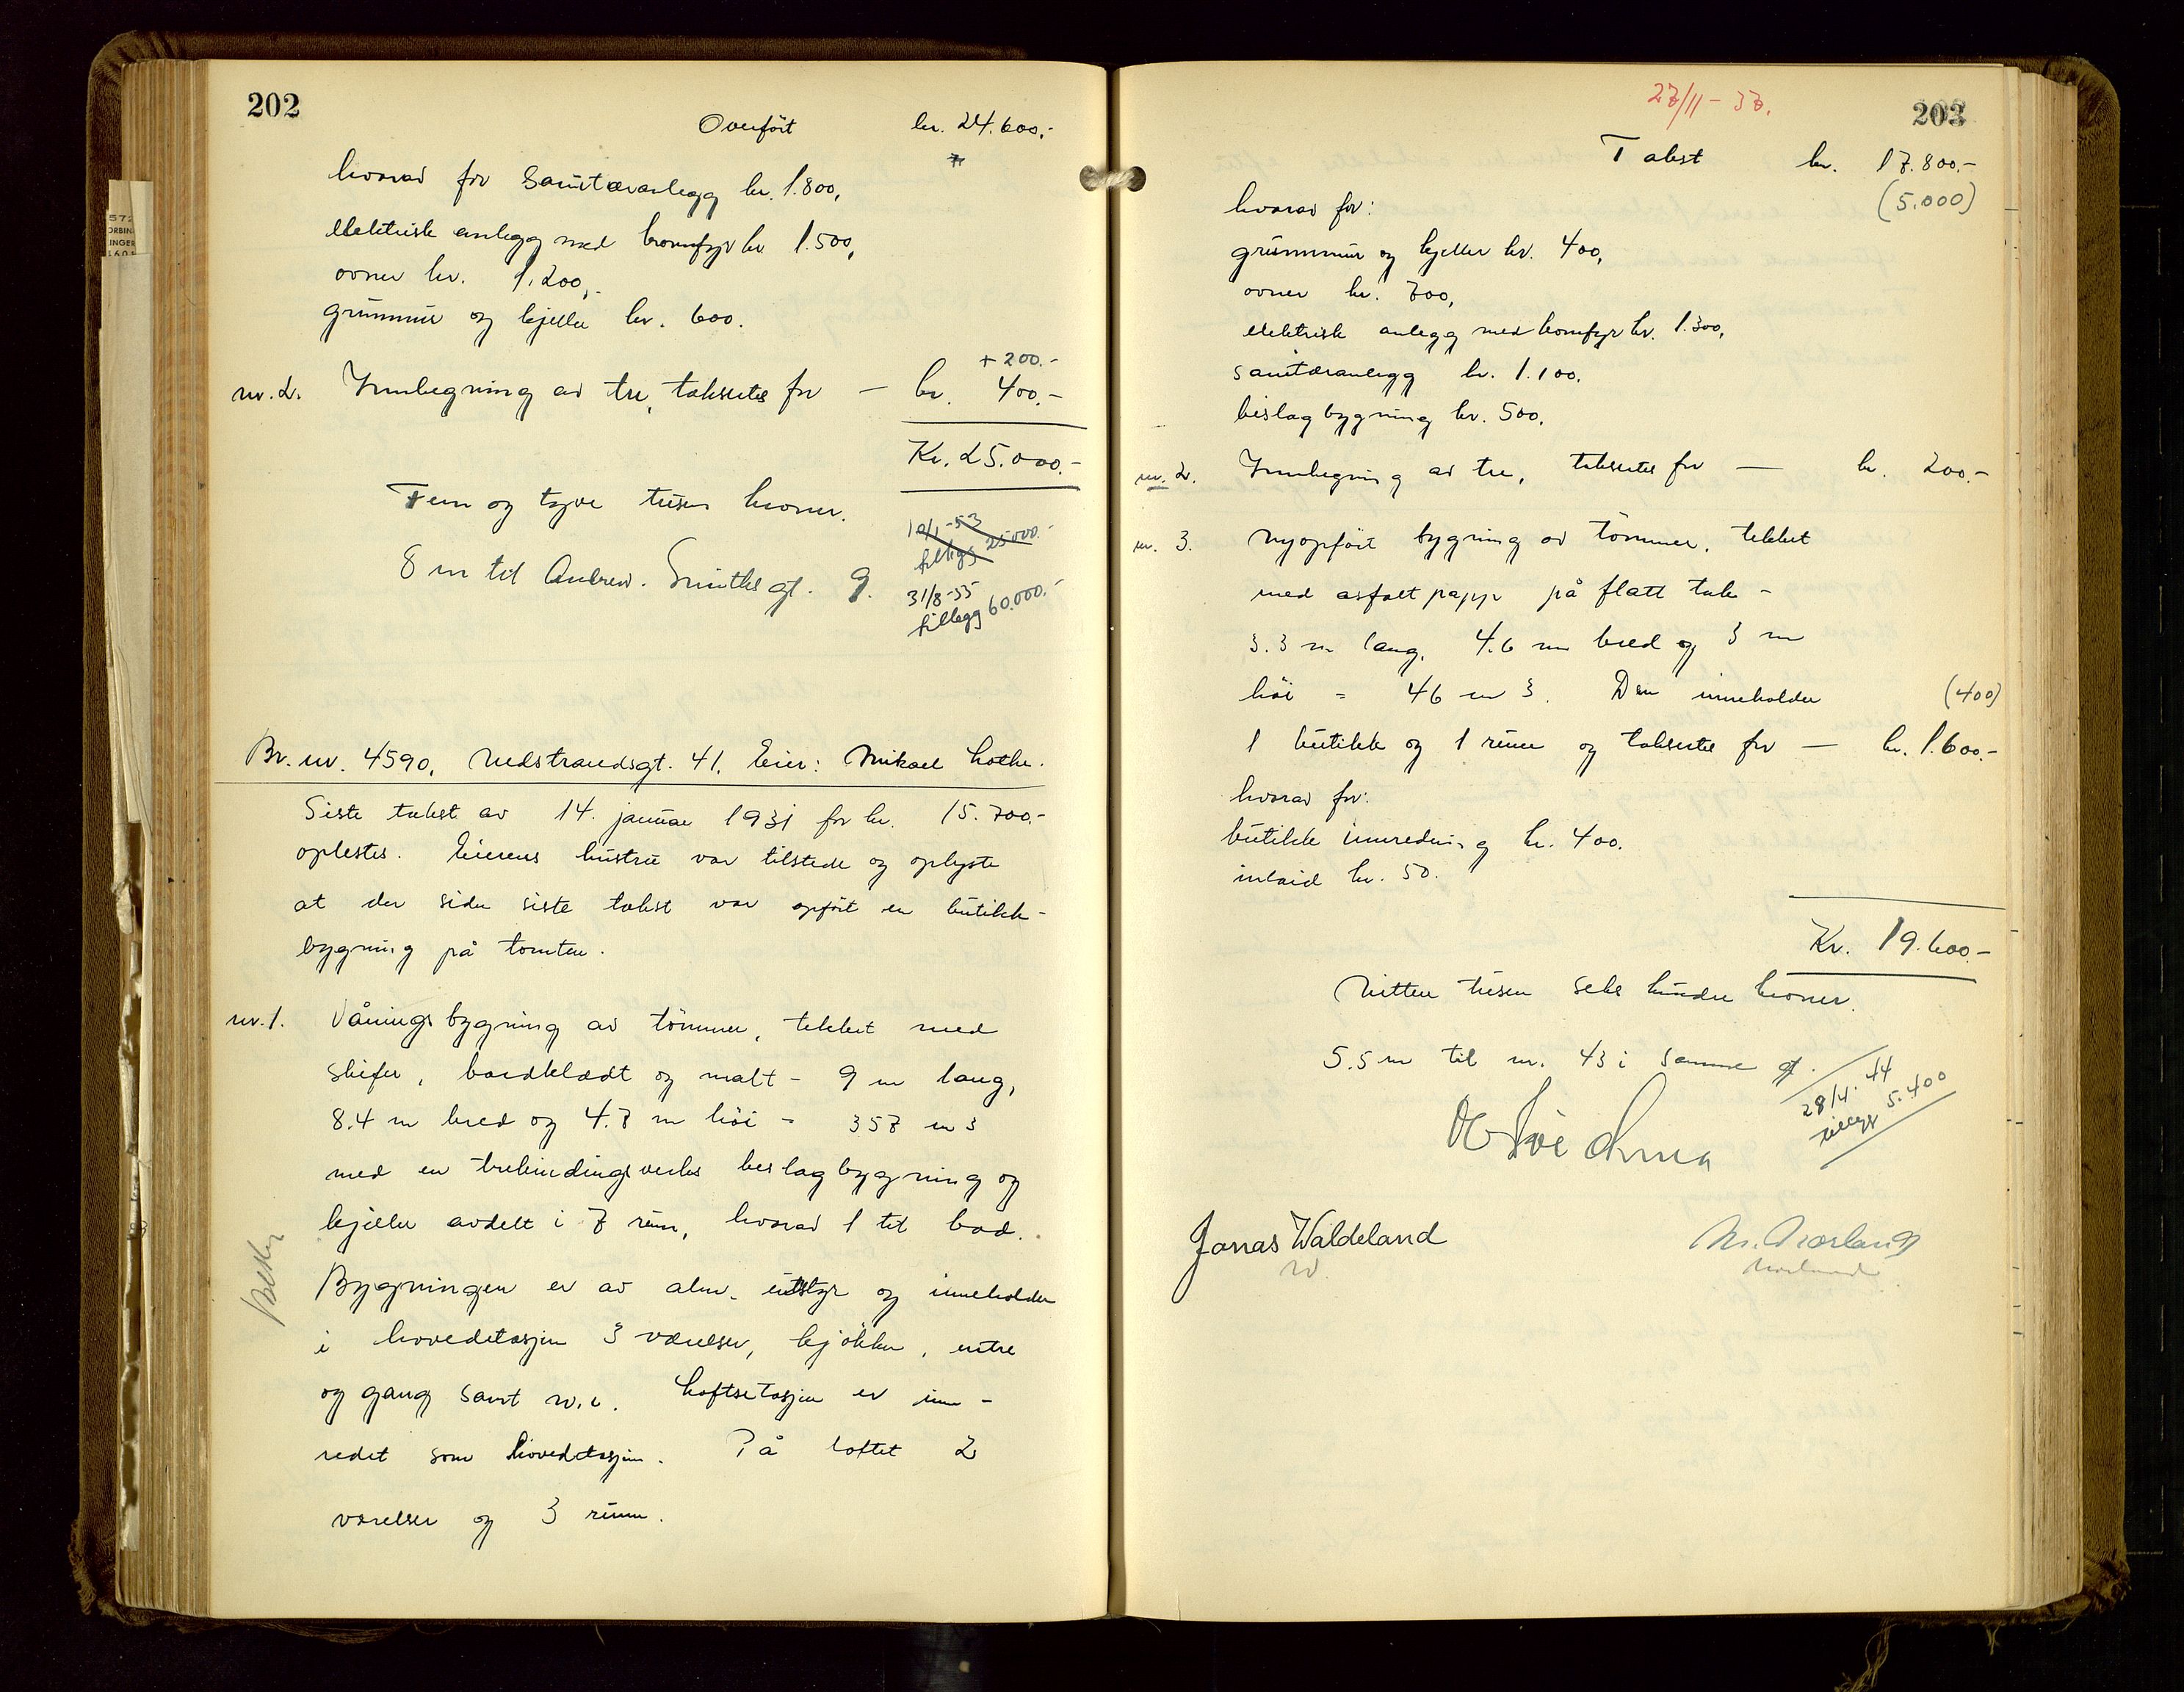 202
Overført kr. 24.600.-
hvorav for sanitæranlegg kr. 1.800,
elektrisk anlegg med komfyr kr. 1.500,
ovner kr. 1.200,-
grunnmur og kjeller kr. 600.
+ 200.-
nr. 2. Innhegning av tre, takseres for — kr. 400.-
Kr. 25.000.-
Fem og tyve tusen kroner.
19/1-53
tillegg 25000.-
8 m til Andrew Smiths gt. 9.
31/8-55
tillegg 60.000.-
Br. nr. 4590, Nedstrandsgt. 41. Eier: Mikael Lothe.
Siste takst av 14. januar 1931 for kr. 15.700.-
oplestes. Eierens hustru var tilstede og oplyste
at der siden siste takst var opført en butikk-
bygning på tomten.
nr. 1. Våningsbygning av tømmer, tekket med
skifer, bordklædt og malt - 9 m lang,
8.4 m bred og 4.7 m høi = 357 m3
med en trebindingsverks beslagbygning og
kjeller avdelt i 7 rum, hvorav 1 til bad.
Bygningen er av alm. utstyr og inneholder
i hovedetasjen 3 værelser, kjøkken, entre
og gang samt w.c. Loftsetasjen er inn-
redet som hovedetasjen. På loftet 2
værelser og 3 rum.
27/11-37.
203
Takst kr. 17.800.-
(5.000)
hvorav for:
grunnmur og kjeller kr. 400,
ovner kr. 700,
elektrisk anlegg med komfyr kr. 1.300,
sanitæranlegg kr. 1.100.
bislagbygning kr. 500.
nr. 2. Innhegning av tre, takseres for — kr. 200.-
nr. 3. Nyopført bygning av tømmer, tekket
med asfaltpapp på flatt tak -
3.3 m lang, 4.6 m bred og 3 m
høi = 46 m3. Den inneholder (400)
1 butikk og 1 rum og takseres for — kr. 1.600.-
hvorav for:
butikkinnredning kr. 400.
inlaid kr. 50.
Kr. 19.600.-
Nitten tusen seks hundre kroner.
5.5 m til nr. 43 i samme gt.
28/4. 44
tillegg 5.400
Jonas Waldeland